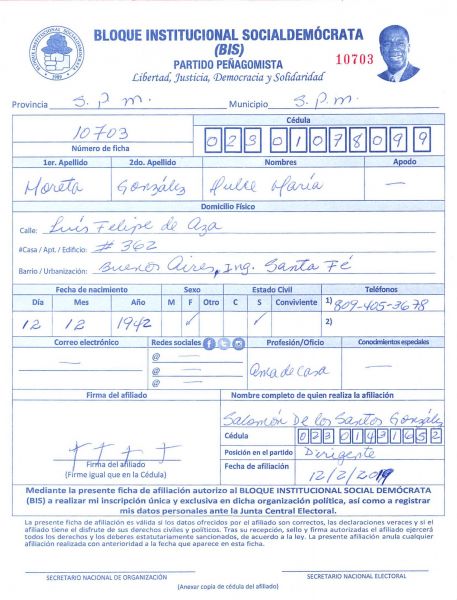 BLOQUE INSTITUCIONAL SOCIALDEMÓCRATA
(BIS)
PARTIDO PEÑAGOMISTA
10703
Libertad, Justicia, Democracia y Solidaridad
BLOQUE INSTITUCIONAL SOCIALDEMÓCRATA
1989
Provincia S. P. M. Municipio S. P. M.
10703
Número de ficha
Cédula
02301078099
1er. Apellido 2do. Apellido Nombres Apodo
Moreta González Dulce María —
Domicilio Físico
Calle: Luís Felipe de Aza
#Casa / Apt. / Edificio: # 362
Barrio / Urbanización: Buenos Aires, Ing. Santa Fé
Fecha de nacimiento Sexo Estado Civil Teléfonos
Día Mes Año M F Otro C S Conviviente 1) 809-405-3678
12 12 1942 ✓ ✓ 2)
Correo electrónico Redes sociales Profesión/Oficio Conocimientos especiales
— @ — Ama de casa —
@ —
@ —
Firma del afiliado Nombre completo de quien realiza la afiliación
Salomón De los Santos González
Cédula 02301431652
Posición en el partido Dirigente
Firma del afiliado
(Firme igual que en la Cédula)
Fecha de afiliación 12/2/2019
Mediante la presente ficha de afiliación autorizo al BLOQUE INSTITUCIONAL SOCIAL DEMÓCRATA
(BIS) a realizar mi inscripción única y exclusiva en dicha organización política, así como a registrar
mis datos personales ante la Junta Central Electoral.
La presente afiliación es válida si los datos ofrecidos por el afiliado son correctos, las declaraciones veraces y si el
afiliado tiene el disfrute de sus derechos civiles y políticos. Tras su recepción, sello y firma autorizadas el afiliado ejercerá
todos los derechos y los deberes estatutariamente sancionados, de acuerdo a la ley. La presente afiliación anula cualquier
afiliación realizada con anterioridad a la fecha que aparece en esta ficha.
SECRETARIO NACIONAL DE ORGANIZACIÓN SECRETARIO NACIONAL ELECTORAL
(Anexar copia de cédula del afiliado)